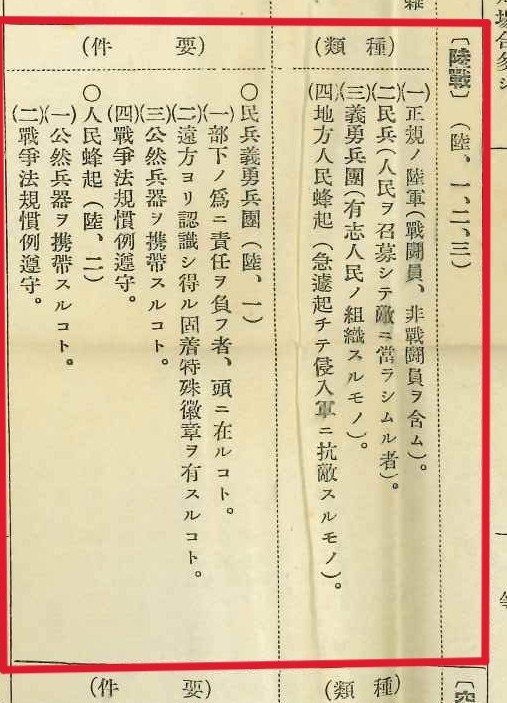 〔陸戰〕（陸、一、二、三）
（種類）
（一）正規ノ陸軍（戰鬪員、非戰鬪員ヲ含ム）。
（二）民兵（人民ヲ召募シテ敵ニ當ラシムル者）。
（三）義勇兵團（有志人民ノ組織スルモノ）。
（四）地方人民蜂起（急遽起チテ侵入軍ニ抗敵スルモノ）。
（要件）
〇民兵義勇兵團（陸、一）
（一）部下ノ爲ニ責任ヲ負フ者、頭ニ在ルコト。
（二）遠方ヨリ認識シ得ル固着特殊徽章ヲ有スルコト。
（三）公然兵器ヲ携帶スルコト。
（四）戰爭法規慣例遵守。
〇人民蜂起（陸、二）
（一）公然兵器ヲ携帶スルコト。
（二）戰爭法規慣例遵守。
（種類）
（要件）